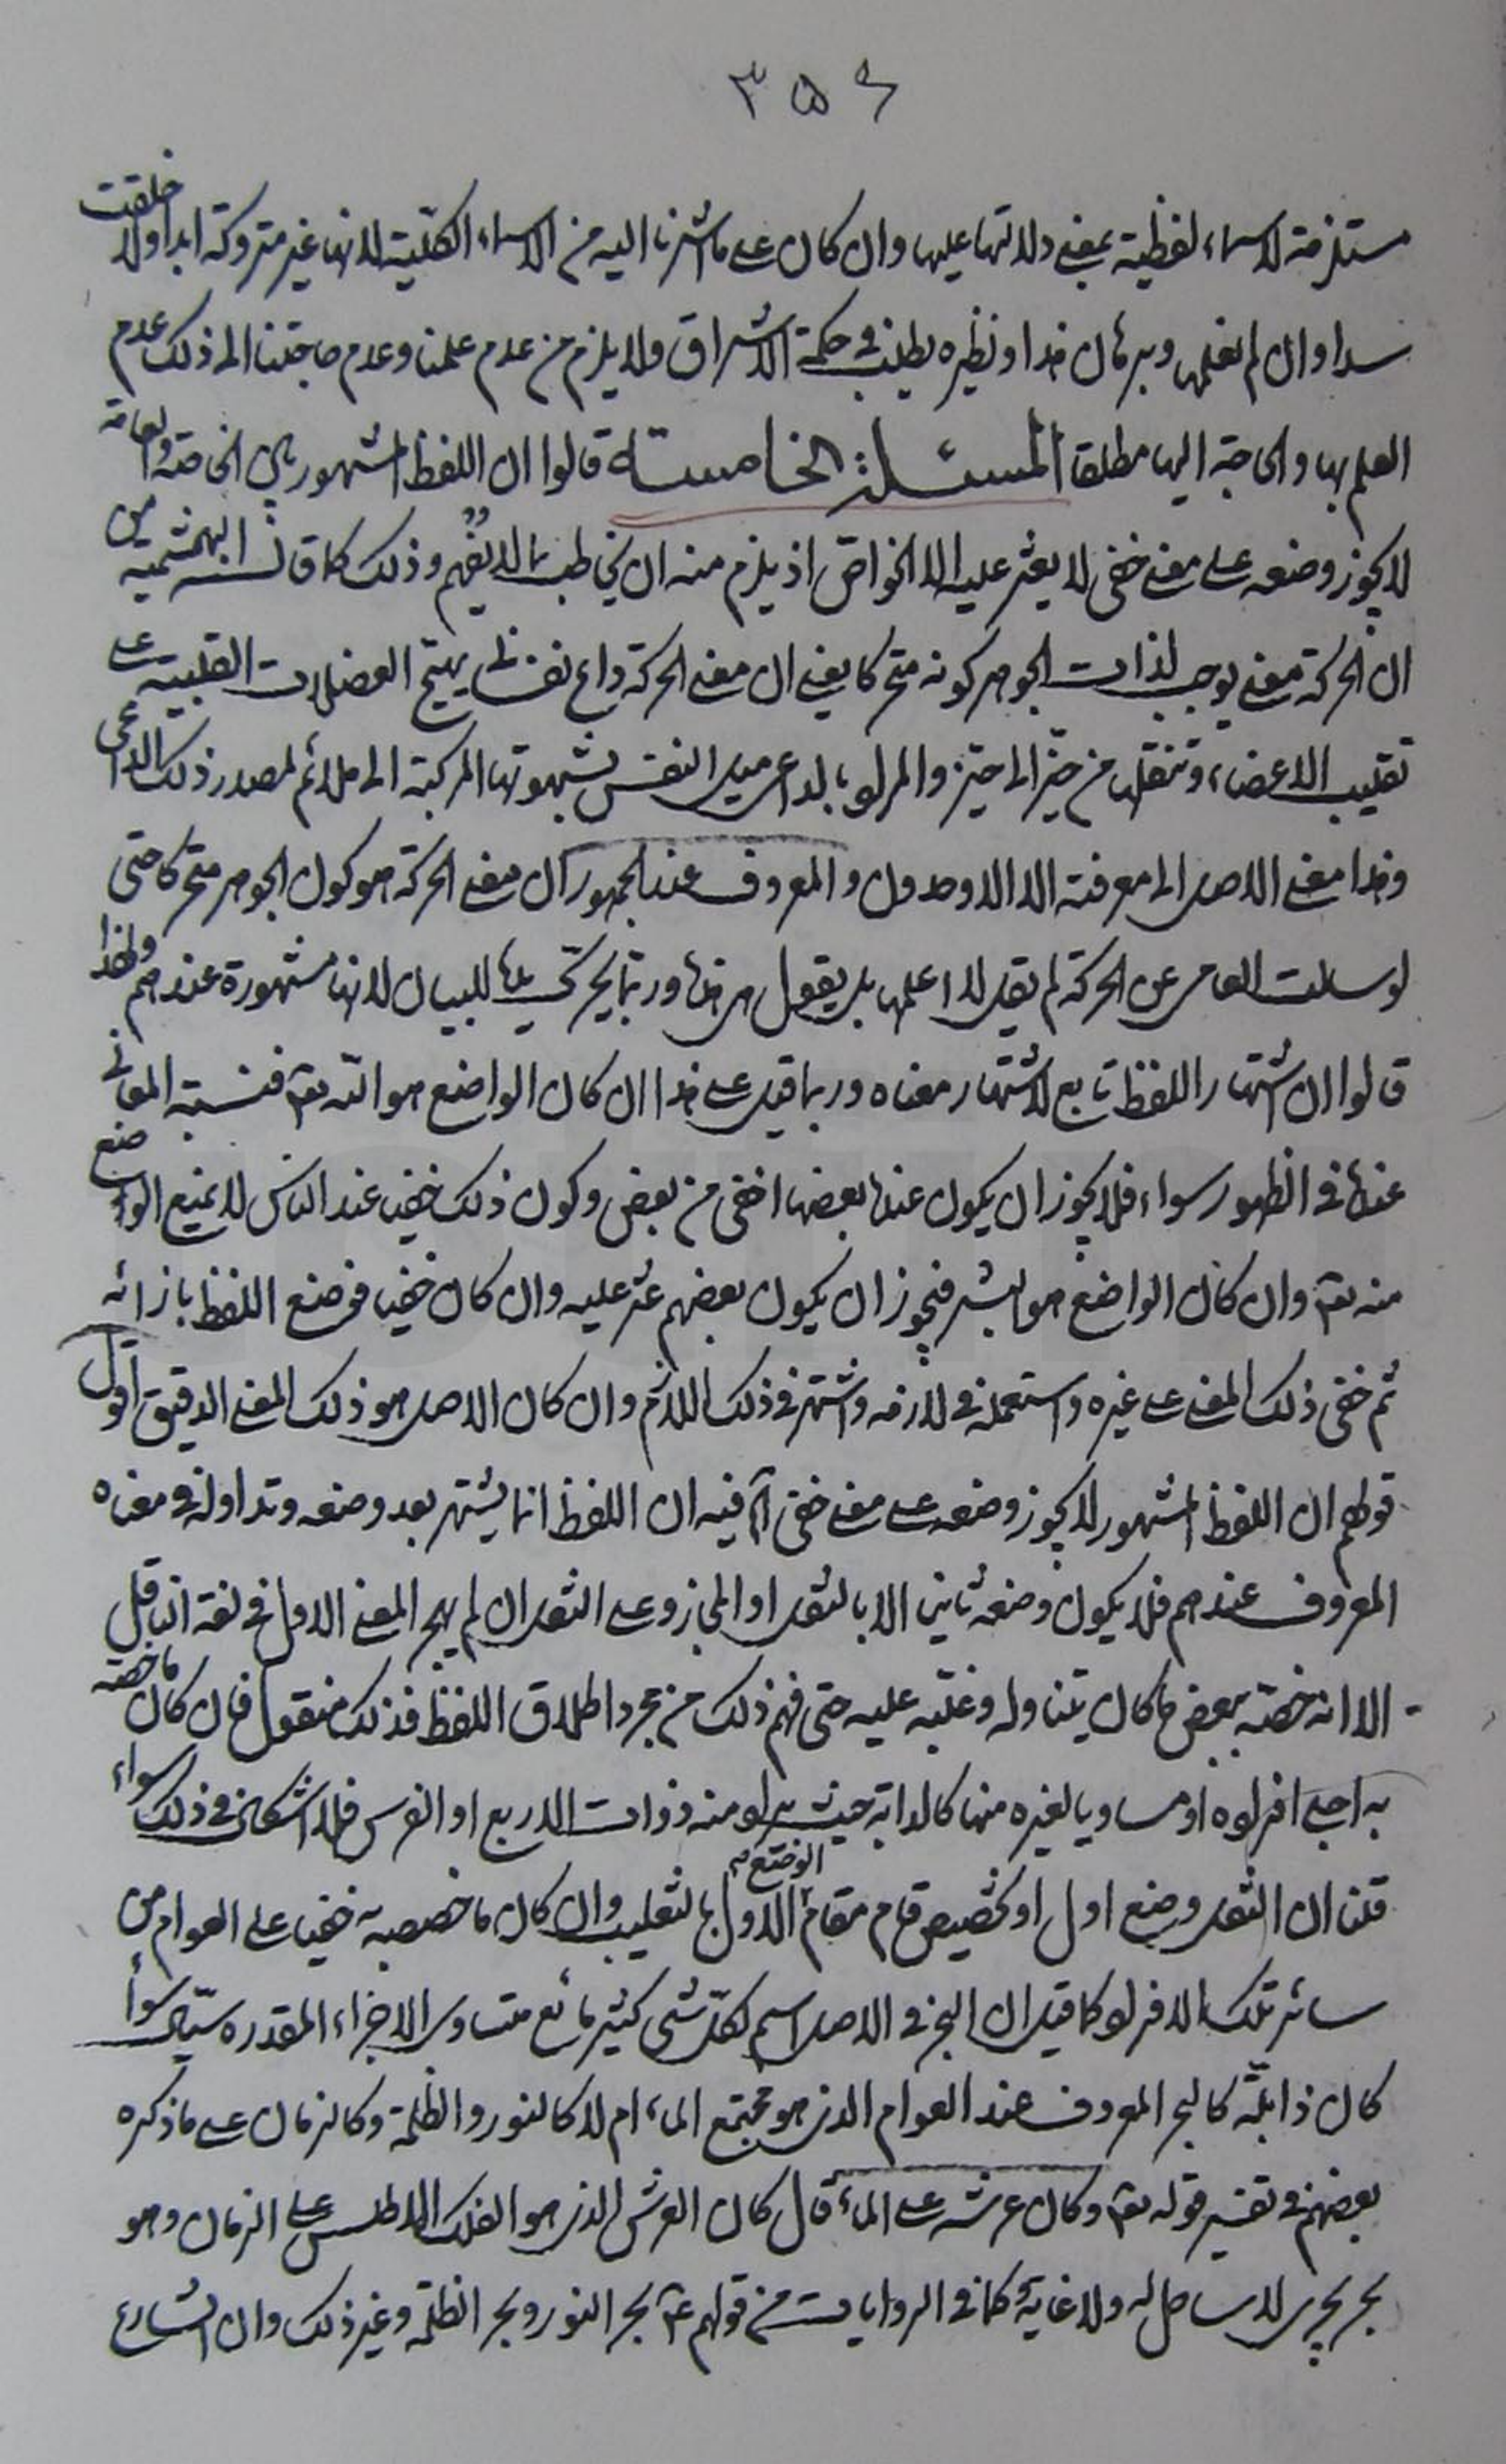 ٣٥٤
مستلزمة لاسماء لفظية بمعنى دلالتها عليها وان كان على ما اشرنا اليه من الاسماء الكلية لانها غير متروكة ابدا ولا خلقت
سدا وان لم نعلمها وبرهان هذا ونظيره يطلب فى حكمة الاشراق ولا يلزم من عدم علمنا وعدم حاجتنا الى ذلك عدم
العلم بها والحاجة اليها مطلقا المسئلة الخامسة قالوا ان اللفظ المشهور بين الخاصة والعامة
لا يجوز وضعه على معنى خفى لا يعثر عليه الا الخواص اذ يلزم منه ان يخاطب بما لا يفهم وذلك كما قالت البهشمية من
ان الحركة معنى يوجب لذات الجوهر كونه متحركا يعنى ان معنى الحركة داع نفسانى يهيج العضلات القلبية على
تقليب الاعضاء وتنقلها من حيز الى حيز والمراد بالداعى ميل النفس بشهوتها المركبة الى ملائم لمصدر ذلك الداعى
وهذا معنى لا يصل الى معرفته الا الاوحدون والمعروف عند الجمهور ان معنى الحركة هو كون الجوهر متحركا حتى
لو سئلت العامى عن الحركة لم يقل لا اعلمها بل يقول هى هذا وربما يحرك يده للبيان لانها مشهورة عندهم ولهذا
قالوا ان اشتهار اللفظ تابع لاشتهار معناه وربما قيل على هذا ان كان الواضع هو الله تعالى فنسبة المعانى
عنده فى الظهور سواء فلا يجوز ان يكون عنده بعضها اخفى من بعض وكون ذلك خفيا عند الناس لا يمنع الوضع
منه تعالى وان كان الواضع هو البشر فيجوز ان يكون بعضهم عثر عليه وان كان خفيا فوضع اللفظ بازائه
ثم خفى ذلك المعنى على غيره واستعمله فى لازمه واشتهر فى ذلك اللازم وان كان الاصل هو ذلك المعنى الدقيق اقول
قولهم ان اللفظ المشهور لا يجوز وضعه على معنى خفى الخ فيه ان اللفظ انما يشتهر بعد وضعه وتداوله فى معناه
المعروف عندهم فلا يكون وضعه ثانيا الا بالنقل او المجاز وعلى النقل ان لم يهجر المعنى الاول فى لغة الناقل
الا انه خصه ببعض ما كان يتناوله وغلبه عليه حتى فهم ذلك من مجرد اطلاق اللفظ فذلك منقول فان كان ما خصه
به اجلى افراده او مساويا لغيره منها كالدابة حيث يراد منه ذوات الاربع او الفرس فلا اشكال فى ذلك سواء
قلنا ان النقل وضع اول او تخصيص قام مقام الوضع الاول بالتغليب وان كان ما خصص به خفيا على العوام من
سائر تلك الافراد كما قيل ان البحر فى الاصل اسم لكل شئ كثير مائع متساوى الاجزاء المقدره سيال سواء
كان ذا بلة كالبحر المعروف عند العوام الذى هو مجتمع الماء ام لا كالنور والظلمة وكالزمان على ما ذكره
بعضهم فى تفسير قوله تعالى وكان عرشه على الماء قال كان العرش الذى هو الفلك الاطلس على الزمان وهو
بحر يجرى لا ساحل له ولا غاية كما فى الروايات من قولهم ع بحر النور وبحر الظلمة وغير ذلك وان الشارع